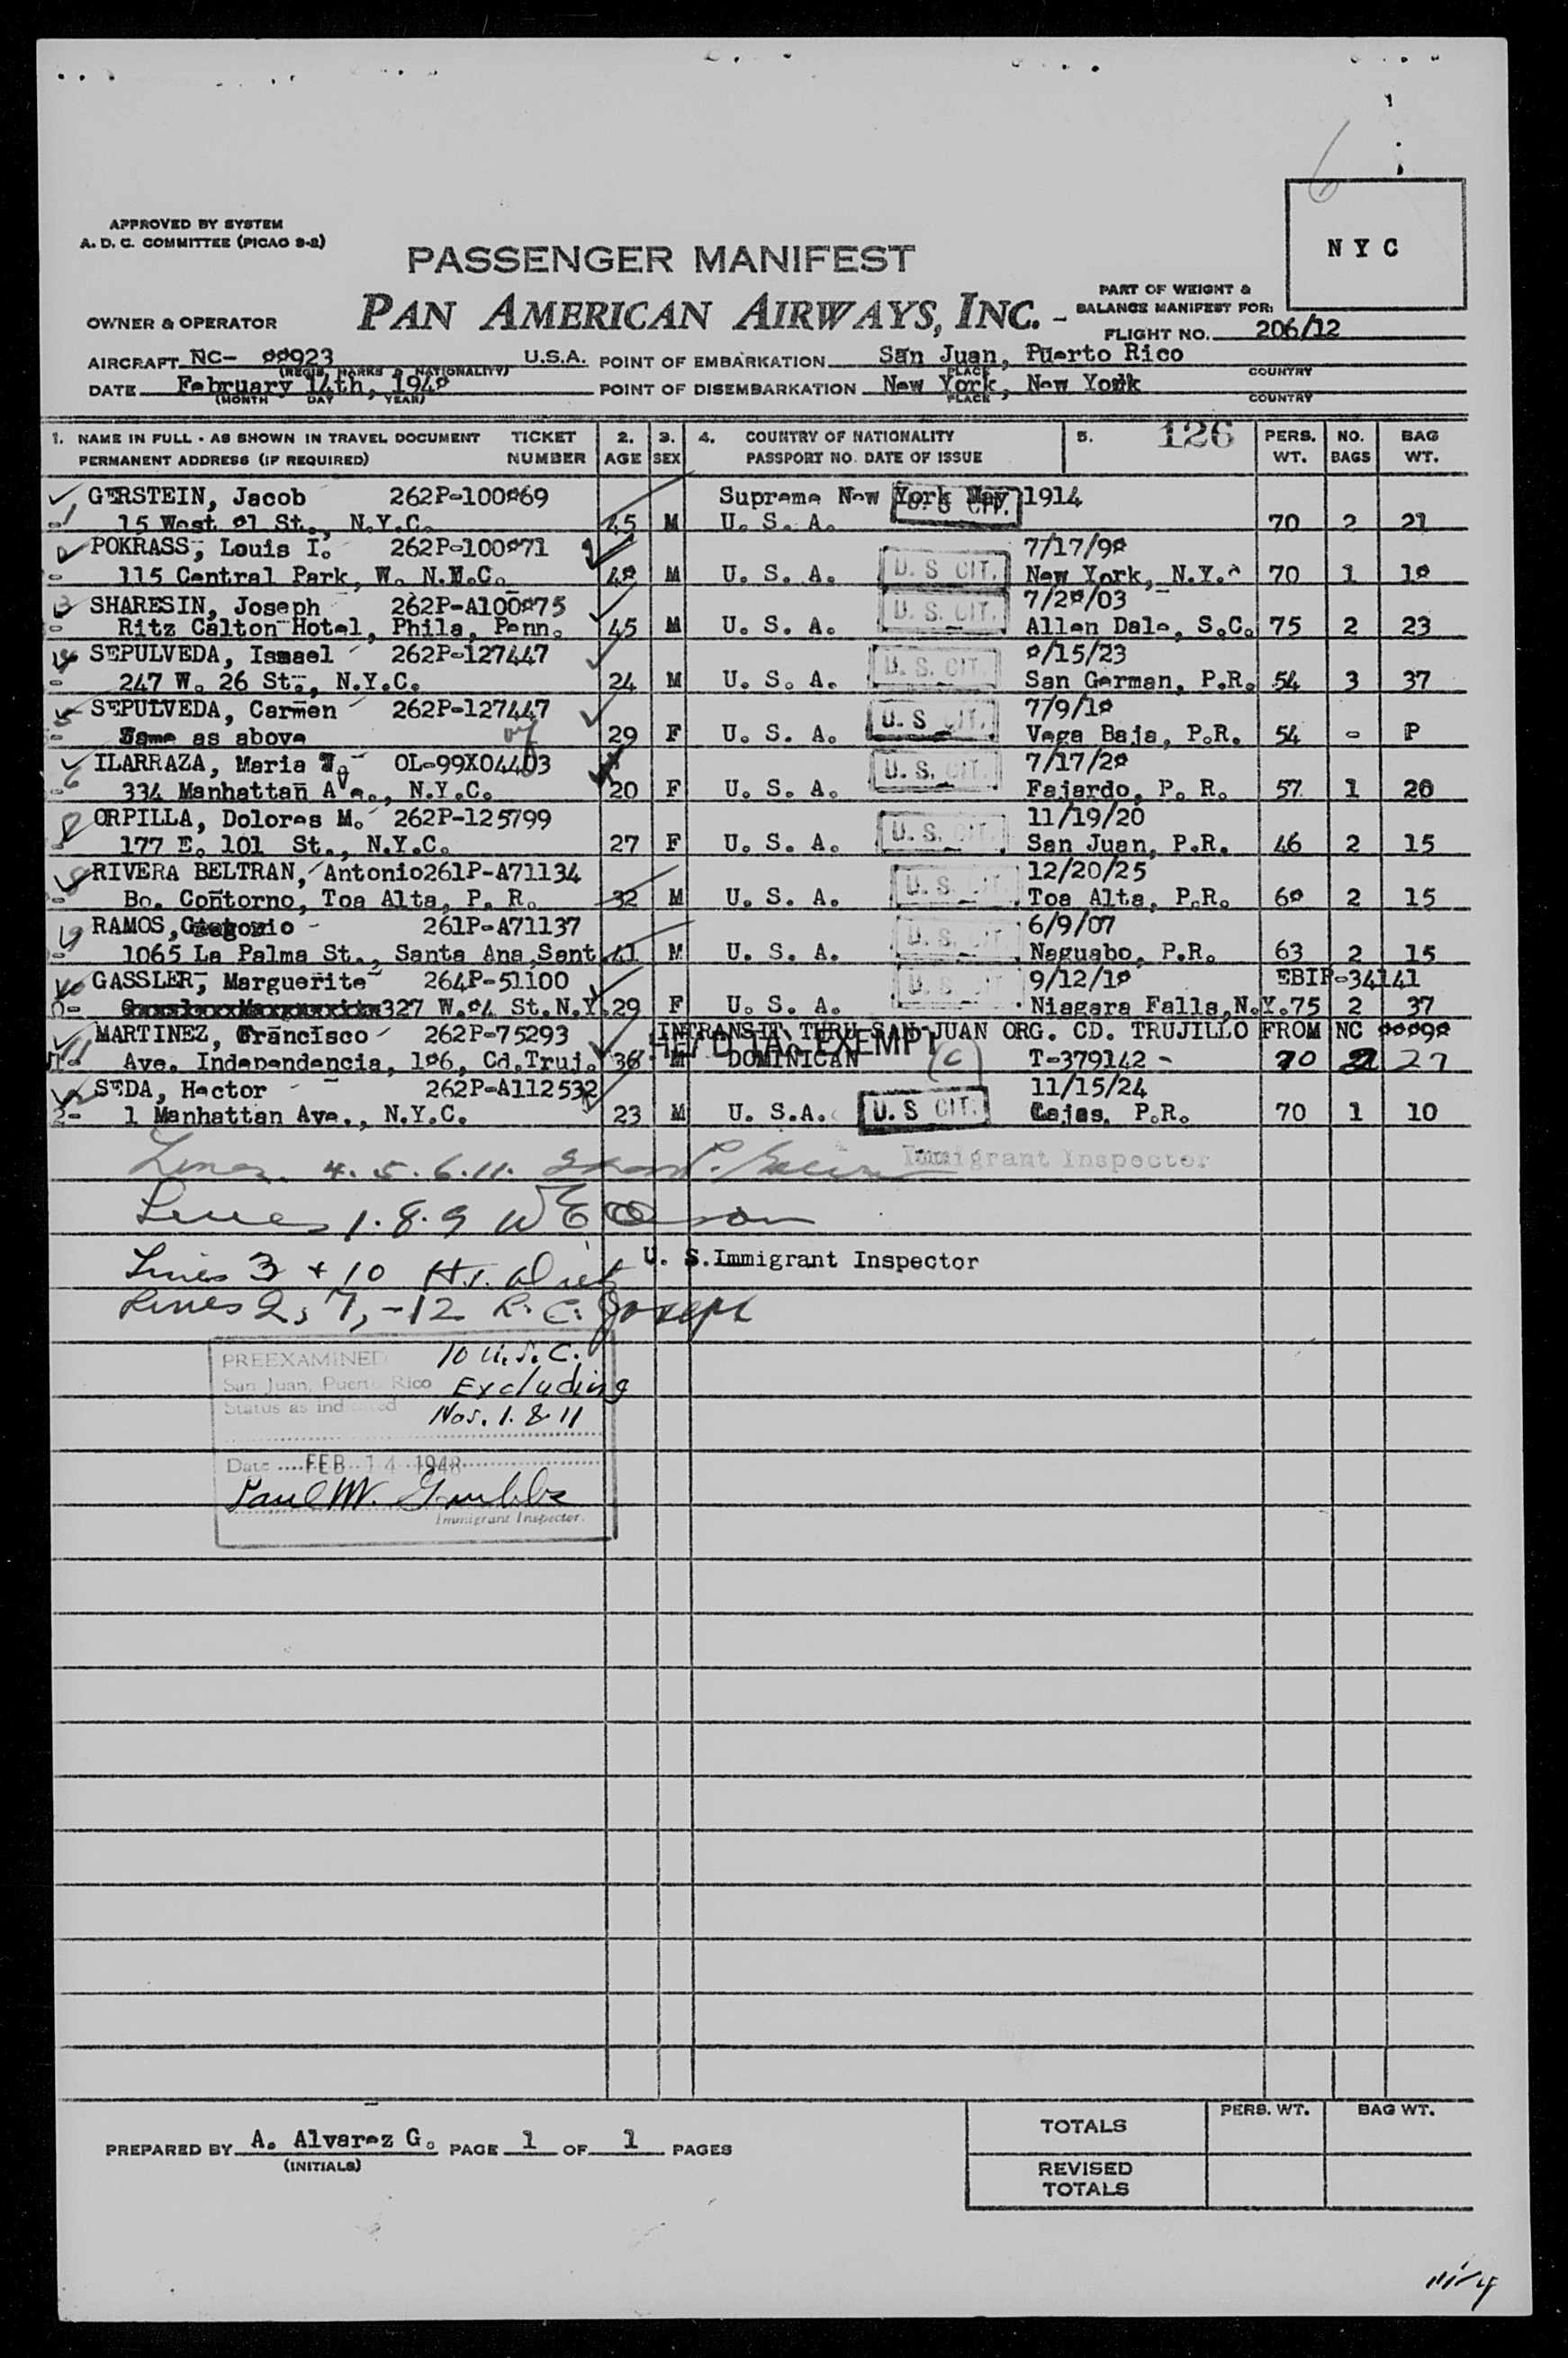 6
APPROVED BY SYSTEM
A. D. C. COMMITTEE (PICAO 9-2)
NYC
PASSENGER MANIFEST
PAN AMERICAN AIRWAYS, INC. -
PART OF WEIGHT &
BALANCE MANIFEST FOR:
OWNER & OPERATOR
FLIGHT NO. 206/12
AIRCRAFT NC- 88923 U.S.A. POINT OF EMBARKATION San Juan, Puerto Rico
(REGIS. MARKS & NATIONALITY) PLACE COUNTRY
DATE February 14th, 1948 POINT OF DISEMBARKATION New York, New York
(MONTH DAY YEAR) PLACE COUNTRY
1. NAME IN FULL - AS SHOWN IN TRAVEL DOCUMENT TICKET 2. 3. 4. COUNTRY OF NATIONALITY 5. 126 PERS. NO. BAG
PERMANENT ADDRESS (IF REQUIRED) NUMBER AGE SEX PASSPORT NO. DATE OF ISSUE WT. BAGS WT.
GERSTEIN, Jacob 262P-100869 Supreme New York May 1914
15 West 81 St., N.Y.C. 45 M U. S. A. U. S CIT. 70 2 21
POKRASS, Louis I. 262P-100871 7/17/98
115 Central Park, W. N.Y.C. 48 M U. S. A. U. S CIT. New York, N.Y. 70 1 18
SHARESIN, Joseph 262P-A100875 7/28/03
Ritz Calton Hotel, Phila, Penn. 45 M U. S. A. U. S. CIT. Allen Dale, S.C. 75 2 23
SEPULVEDA, Ismael 262P-127447 8/15/23
247 W. 26 St., N.Y.C. 24 M U. S. A. U. S. CIT. San German, P.R. 54 3 37
SEPULVEDA, Carmen 262P-127447 7/9/18
Same as above 29 F U. S. A. U. S CIT. Vega Baja, P.R. 54 - P
ILARRAZA, Maria OL-99X04403 7/17/28
334 Manhattan Ave., N.Y.C. 20 F U. S. A. U. S. CIT. Fajardo, P. R. 57 1 20
ORPILLA, Dolores M. 262P-125799 11/19/20
177 E. 101 St., N.Y.C. 27 F U. S. A. U. S. CIT. San Juan, P.R. 46 2 15
RIVERA BELTRAN, Antonio 261P-A71134 12/20/25
Bo. Contorno, Toa Alta, P. R. 32 M U. S. A. U. S. CIT Toa Alta, P.R. 68 2 15
RAMOS, Gregorio - 261P-A71137 6/9/07
1065 La Palma St., Santa Ana, Sant. 41 M U. S. A. U. S. CIT Naguabo, P.R. 63 2 15
GASSLER, Marguerite 264P-51100 9/12/18 EBIR-34141
327 W. 84 St. N.Y. 29 F U. S. A. U. S CIT Niagara Falls, N.Y. 75 2 37
MARTINEZ, Francisco 262P-75293 INTRANSIT THRU SAN JUAN ORG. CD. TRUJILLO FROM NC 88898
Ave. Independencia, 186, Cd. Truj. 36 M HEAD TAX EXEMPT DOMINICAN (C) T-379142 - 70 2 27
SEDA, Hector 262P-A112532 11/15/24
1 Manhattan Ave., N.Y.C. 23 M U. S.A. U. S CIT. Lajas, P.R. 70 1 10
Lines 4. 5. 6. 11. Immigrant Inspector
Lines 1. 8. 9 W E
U. S. Immigrant Inspector
Lines 3 + 10
Lines 2, 7, - 12 R. C. Joseph
PREEXAMINED 10 U.S.C.
San Juan, Puerto Rico Excluding
Status as indicated Nos. 1. 8. 11
Date FEB 14 1948
Paul M. Grubbs
Immigrant Inspector.
PREPARED BY A. Alvarez G. PAGE 1 OF 1 PAGES
(INITIALS)
PERS. WT. BAG WT.
TOTALS
REVISED
TOTALS